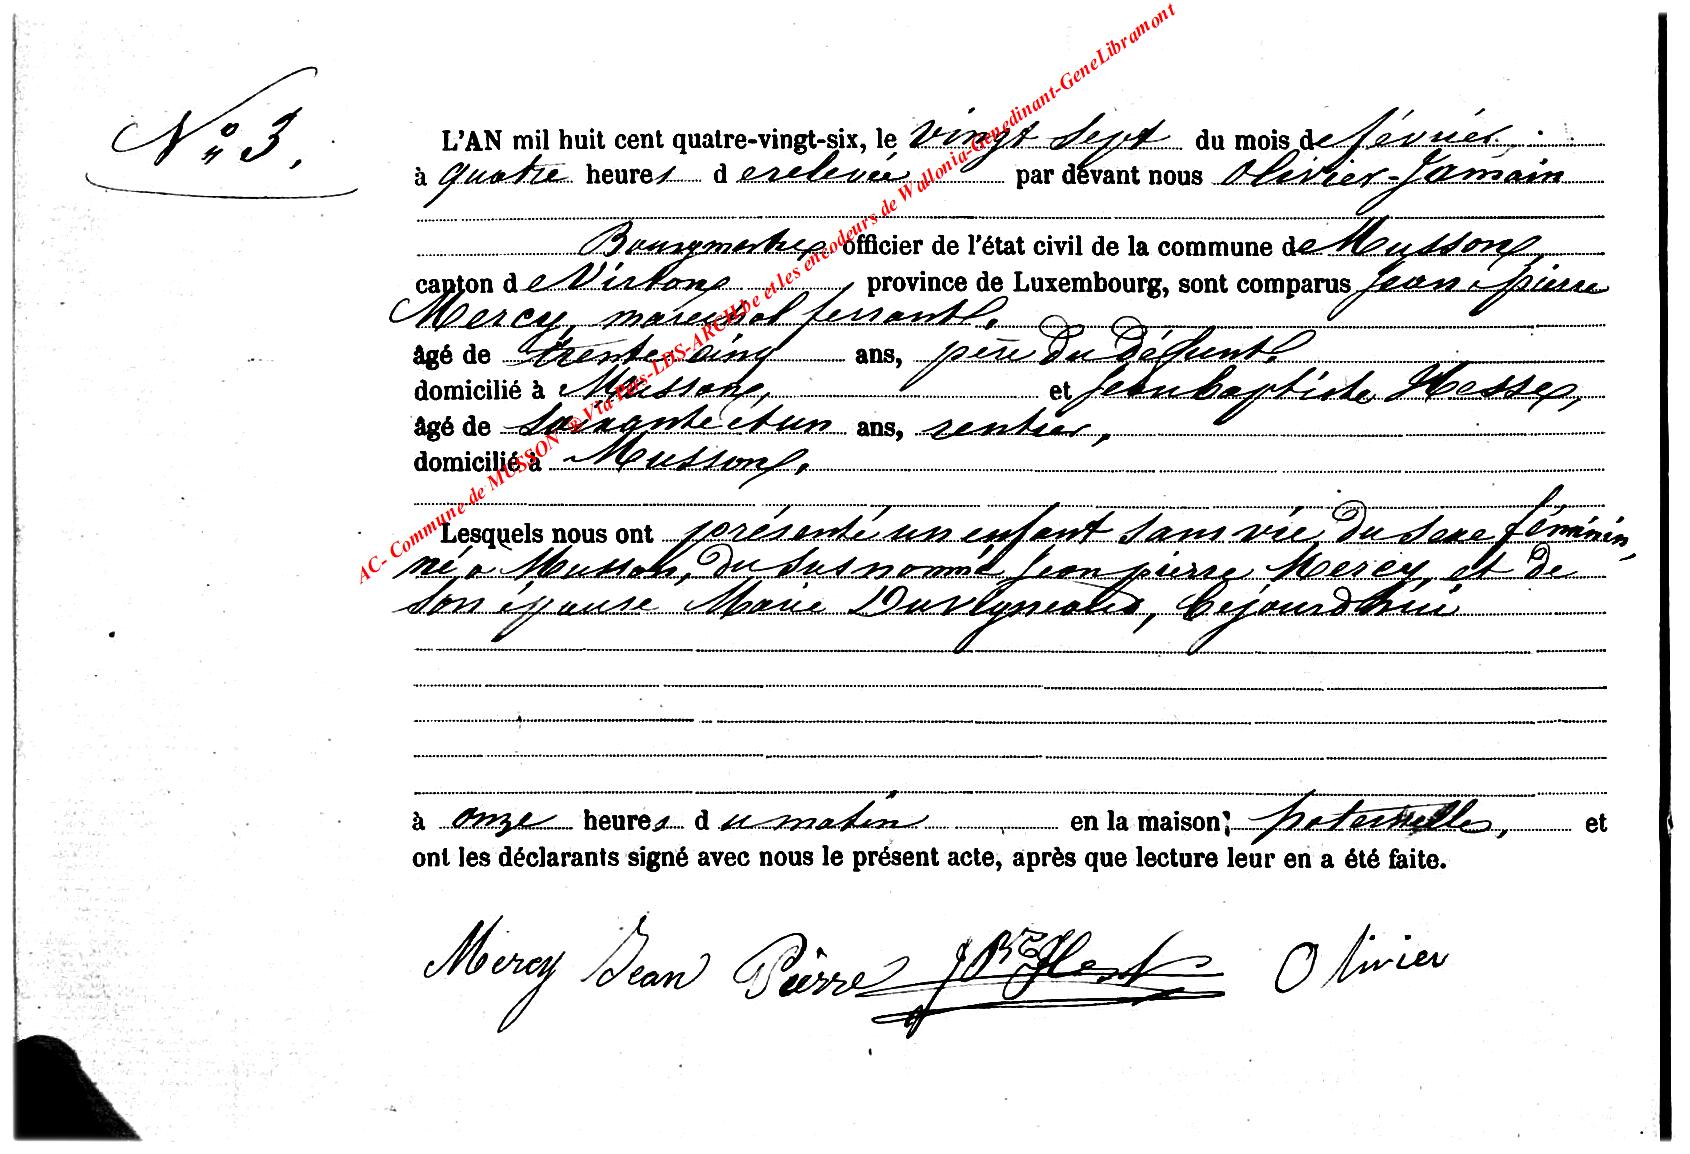 N° 3.
AC- Commune de MUSSON ® Via Pits-LDS-ARCH.be et les encodeurs de Wallonia-Genedinant-GeneLibramont
L'AN mil huit cent quatre-vingt-six, le vingt sept du mois de février
à quatre heures de relevée par devant nous Olivier-Jamain
Bourgmestre officier de l'état civil de la commune de Musson,
canton de Virton province de Luxembourg, sont comparus Jean pierre
Mercy, marechal ferrant,
âgé de trente cinq ans, père du défunt,
domicilié à Musson, et Jean baptiste Hesse,
âgé de soixante et un ans, rentier,
domicilié à Musson,
Lesquels nous ont présenté un enfant sans vie, du sexe féminin,
né à Musson, du susnommé Jean pierre Mercy, et de
son épouse Marie Duvigneaud, cejourd'hui
à onze heures du matin en la maison paternelle, et
ont les déclarants signé avec nous le présent acte, après que lecture leur en a été faite.
Mercy Jean Pierre Olivier